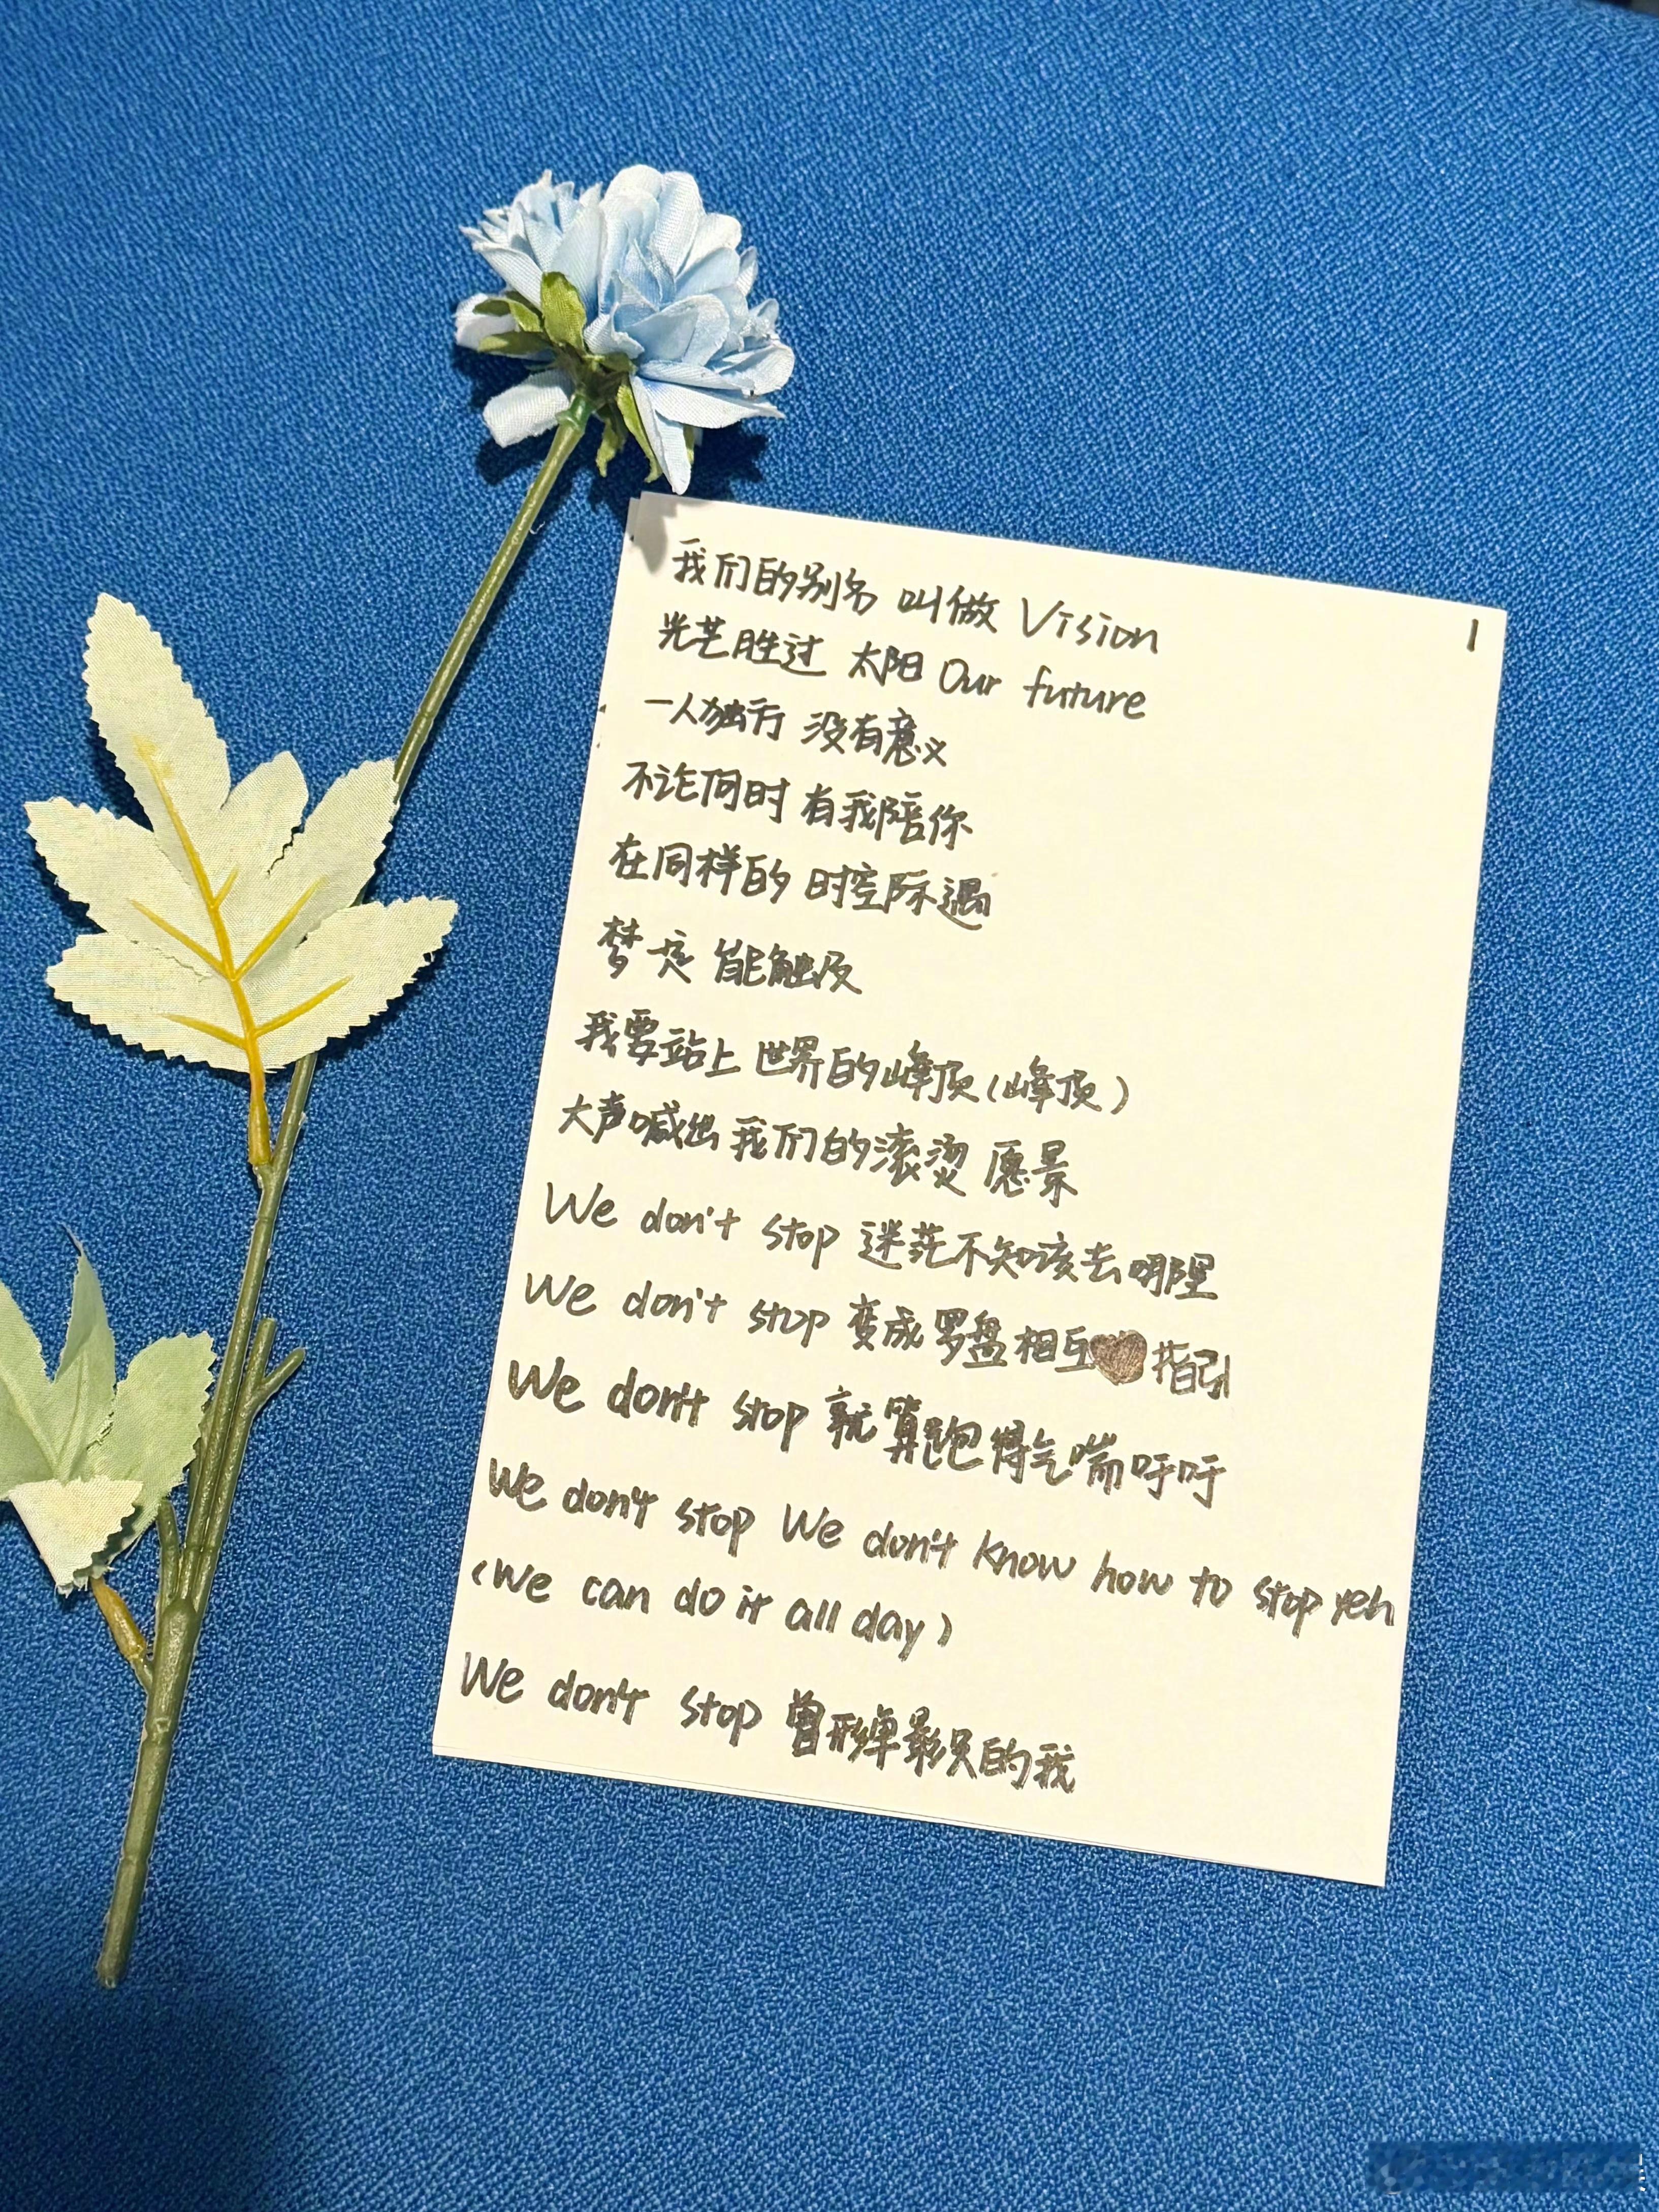 我们的别名 叫做 Vision
1
光芒胜过 太阳 Our future
一人独行 没有意义
不论何时 有我陪你
在同样的 时空际遇
梦 一定 能触及
我要站上 世界的峰顶(峰顶)
大声喊出 我们的滚烫 愿景
We don't stop 迷茫不知该去哪里
We don't stop 变成罗盘相互指引
We don't stop 就算跑得气喘吁吁
We don't stop We don't know how to stop yeh
(We can do it all day)
We don't stop 曾形单影只的我